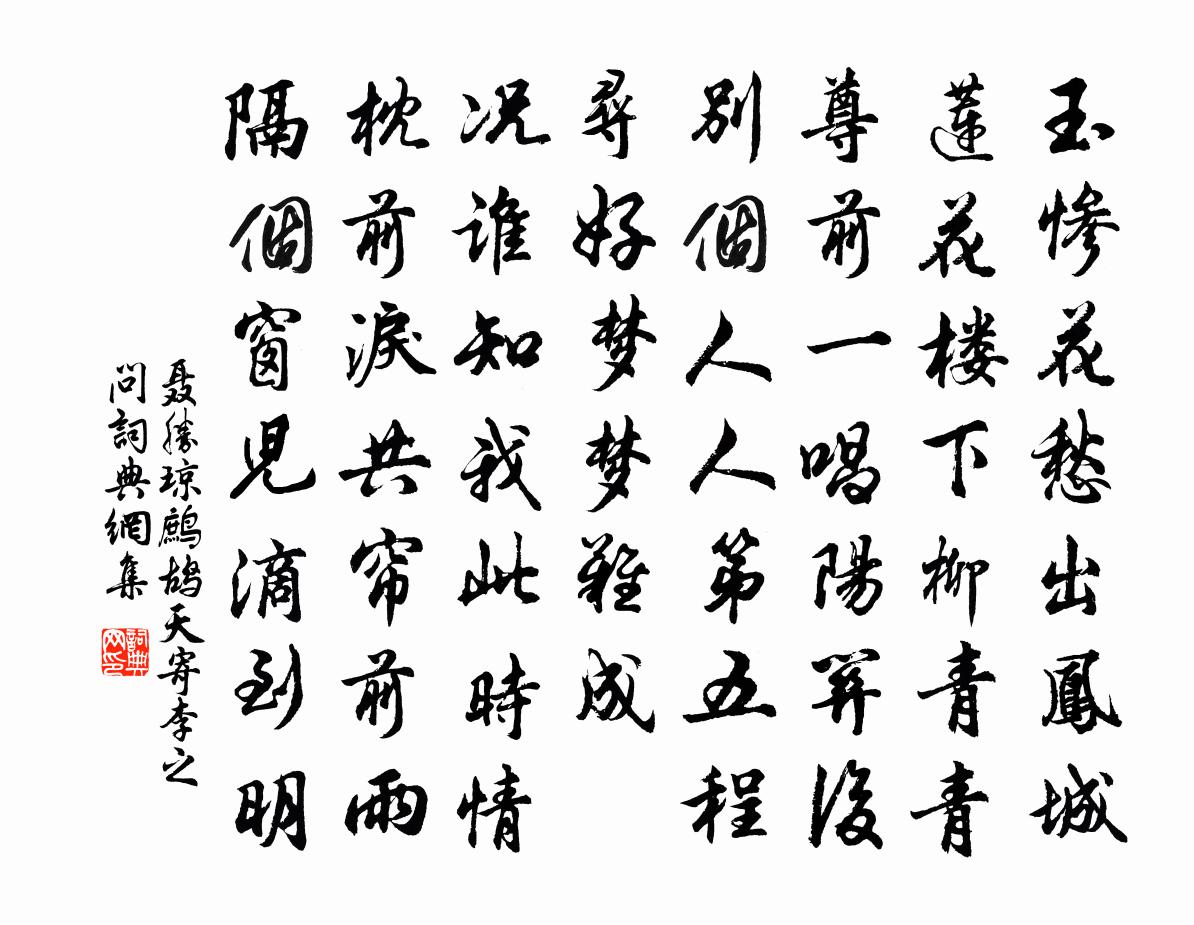 玉惨花愁出鳳城
蓮花楼下柳青青
尊前一唱陽関後
別個人人第五程
尋好梦梦難成
况谁知我此時情
枕前淚共帘前雨
隔個窗児滴到明
聂勝琼鷓鸪天寄李之
問詞典網集
詞典
网印